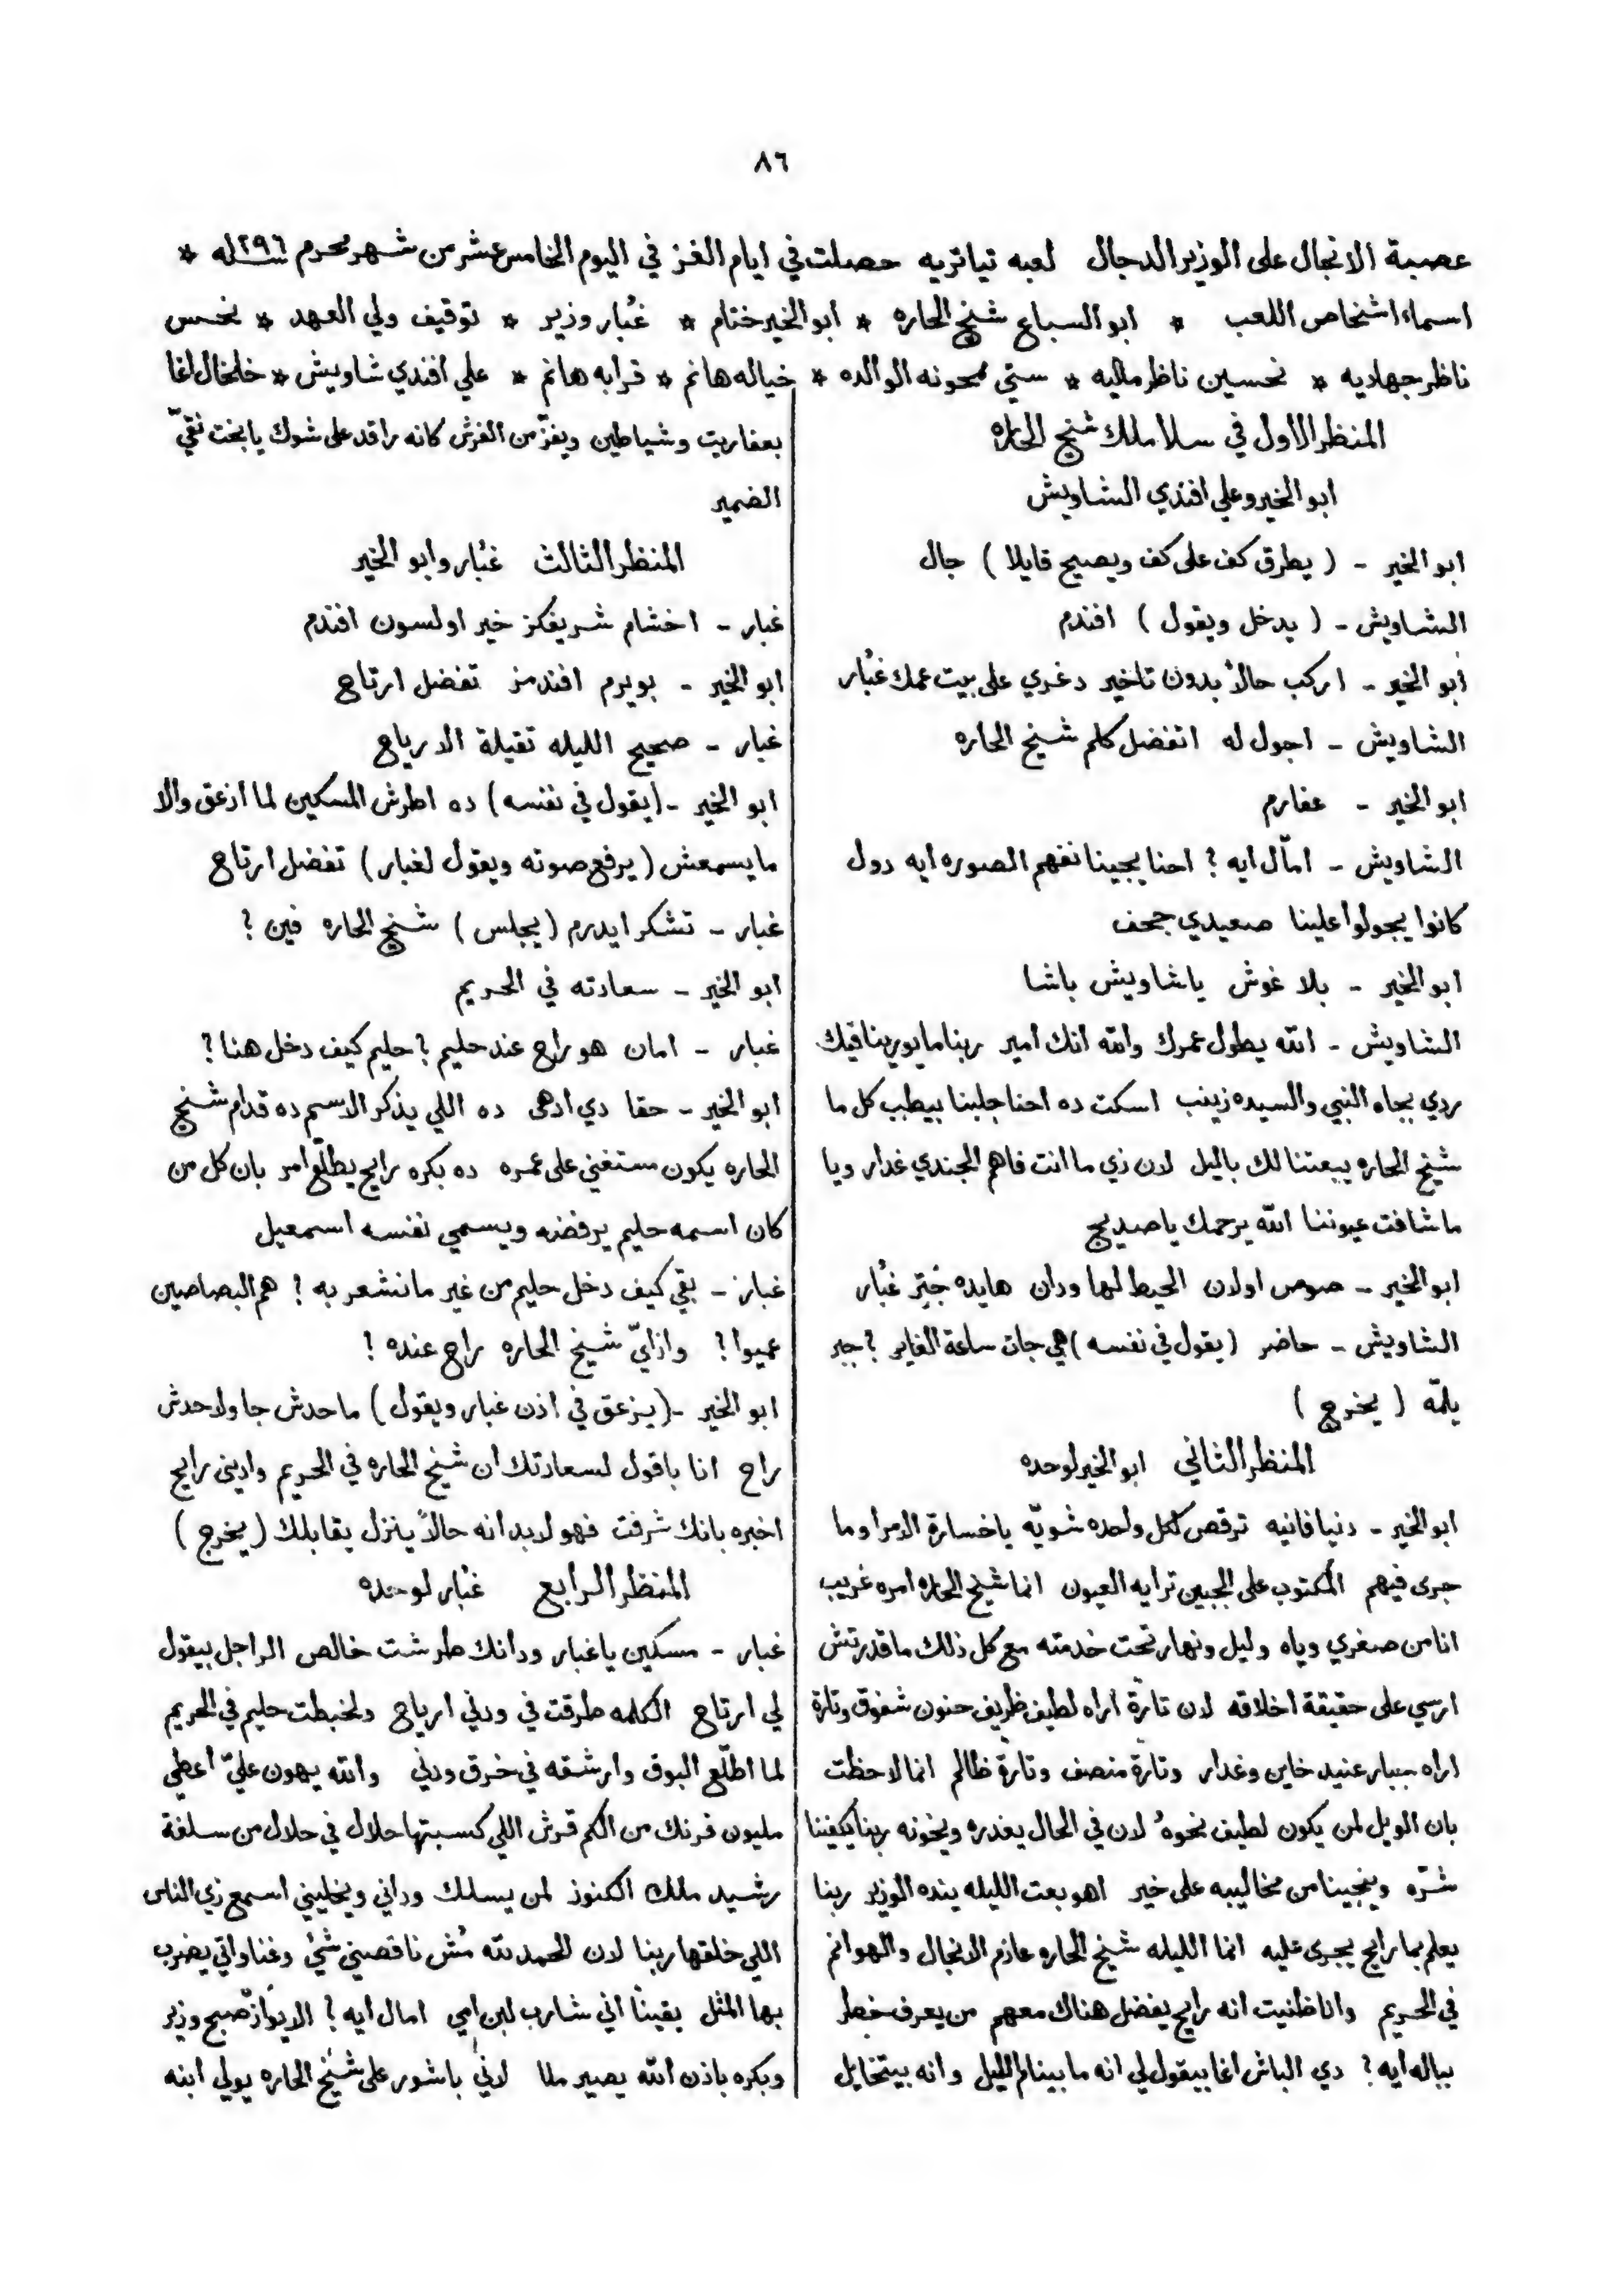 ٨٦
عصبة الانجال على الوزير الدجال لعبه تياتريه حصلت في ايام الغز في اليوم الخامس عشر من شهر محرم سنه ١٢٩٦ *
اسماء اشخاص اللعب * ابو السباع شيخ الحاره * ابو الخير ختام * غبار وزير * توقيف ولي العهد * نحس
ناظر جهاديه * نحسين ناظر ماليه * ستي محونه الوالده * خياله هانم * قرابه هانم * علي افندي شاويش * خلخال اغا
المنظر الاول في سلاملك شيخ الحاره
ابو الخير وعلي افندي الشاويش
ابو الخير - ( يطرق كف على كف ويصيح قايلا ) جال
الشاويش - ( يدخل ويقول ) افندم
ابو الخير - اركب حالاً بدون تاخير دغري على بيت عمك غُبار
الشاويش - اجول له اتفضل كلم شيخ الحاره
ابو الخير - عفارم
الشاويش - امّال ايه ? احنا يجينا نفهم الصوره ايه دول
كانوا يجولوا علينا صعيدي جحف
ابو الخير - بلا غوش يا شاويش باشا
الشاويش - الله يطول عمرك والله انك امير ربنا ما يورينا فيك
ردي بجاه النبي والسيده زينب اسكت ده احنا جلبنا بيطب كل ما
شيخ الحاره يبعتنا لك بالليل لان زي ما انت فاهم الجندي غدار ويا
ما شافت عيوننا الله يرحمك يا صديج
ابو الخير - صوص اولان الحيط لها ودان هايده جُبّز غُبار
الشاويش - حاضر ( يقول في نفسه ) هي جات ساعة الغاير ? جبر
يلمّه ( يخرج )
المنظر الثاني ابو الخير لوحده
ابو الخير - دنيا فانيه ترقص لكل واحده شويّه يا خسارة الامرا وما
جرى فيهم المكتوب على الجبين ترايه العيون انما شيخ الحاره امره غريب
انا من صغري وياه وليل ونهار تحت خدمته مع كل ذلك ما قدرتش
ارسي على حقيقة اخلاقه لان تارةً اراه لطيف ظريف حنون شفوق وتارة
اراه جبار عنيد خاين وغدار وتارة منصف وتارة ظالم انما لاحظت
بان الويل لمن يكون لطيف نحوه لان في الحال يغدره ويخونه ربنا يكفينا
شرّه وينجينا من مخاليبه على خير اهو بعت الليله ينده الوزير ربنا
يعلم بما رايح يجرى عليه انما الليله شيخ الحاره عازم الانجال والهوانم
في الحريم وانا ظنيت انه رايح يفضل هناك معهم من يعرف خطر
بباله ايه ? دي الباش اغا بيقول لي انه ما بينام الليل وانه بيتخايل
بعفاريت وشياطين ويفزّ من الفرش كانه راقد على شوك يا بخت نقيّ
الضمير
المنظر الثالث غبار وابو الخير
غبار - اخشام شريفكز خير اولسون افندم
ابو الخير - بويرم افندمز تفضل ارتاح
غبار - صحيح الليله تقيلة الارياح
ابو الخير - ( يقول في نفسه ) ده اطرش المسكين لما ازعق والا
ما يسمعش ( يرفع صوته ويقول لغبار ) تفضل ارتاح
غبار - تشكر ايدرم ( يجلس ) شيخ الحاره فين ?
ابو الخير - سعادته في الحريم
غبار - امان هو راح عند حليم ? حليم كيف دخل هنا ?
ابو الخير - حقا دي ادهى ده اللي يذكر الاسم ده قدام شيخ
الحاره يكون مستغني على عمره ده بكره رايح يطلّع امر بان كل من
كان اسمه حليم يرفضه ويسمي نفسه اسمعيل
غبار - بقي كيف دخل حليم من غير ما نشعر به ! هم البصاصين
عميوا ? وازايّ شيخ الحاره راح عنده !
ابو الخير - ( يزعق في اذن غبار ويقول ) ما حدش جا ولا حدش
راح انا باقول لسعادتك ان شيخ الحاره في الحريم واديني رايح
اخبره بانك شرفت فهو لابد انه حالاً ينزل يقابلك ( يخرج )
المنظر الرابع غبار لوحده
غبار - مسكين يا غبار ودانك طرشت خالص الراجل بيقول
لي ارتاح الكلمه طرقت في ودني ارياح ولخبطت حليم في الحريم
لما اطلّع البوق وارشقه في خرق ودني والله يهون عليّ اعطي
مليون فرنك من الكم قرش اللي كسبتها حلال في حلال من سلفة
رشيد ملك الكنوز لمن يسلك وداني ويخليني اسمع زي الناس
اللي خلقها ربنا لان الحمد لله مُش ناقصني شئ وغناواتي يضرب
بها المثل يقينًا اني شارب لبن امي امال ايه ? الايواز صبح وزير
وبكره باذن الله يصير ملا لاني باشور على شيخ الحاره يولي ابنه